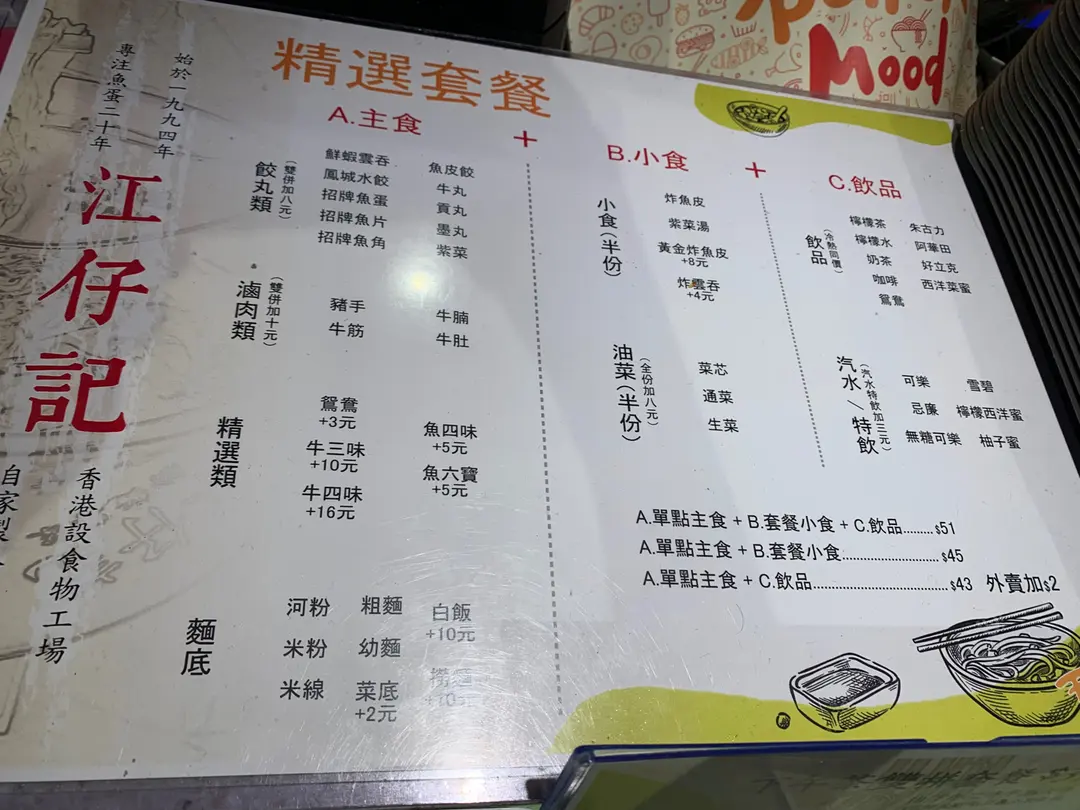 Mood
始於一九九四年
專注魚蛋二十年
江仔記
香港設食物工場
自家製
精選套餐
A.主食
+
B.小食
+
C.飲品
餃丸類
(雙併加八元)
鮮蝦雲吞
鳳城水餃
招牌魚蛋
招牌魚片
招牌魚角
魚皮餃
牛丸
貢丸
墨丸
紫菜
滷肉類
(雙併加十元)
豬手
牛筋
牛腩
牛肚
精選類
鴛鴦
+3元
牛三味
+10元
牛四味
+16元
魚四味
+5元
魚六寶
+5元
麵底
河粉
米粉
米線
粗麵
幼麵
菜底
+2元
白飯
+10元
+10元
小食(半份)
炸魚皮
紫菜湯
黃金炸魚皮
+8元
炸雲吞
+4元
油菜(半份)
(全份加八元)
菜芯
通菜
生菜
飲品
(冷熱同價)
檸檬茶
檸檬水
奶茶
咖啡
鴛鴦
朱古力
阿華田
好立克
西洋菜蜜
汽水/特飲
(汽水特飲加三元)
可樂
忌廉
無糖可樂
雪碧
檸檬西洋蜜
柚子蜜
A.單點主食 + B.套餐小食 + C.飲品.........$51
A.單點主食 + B.套餐小食..............................$45
A.單點主食 + C.飲品..........................................$43 外賣加$2